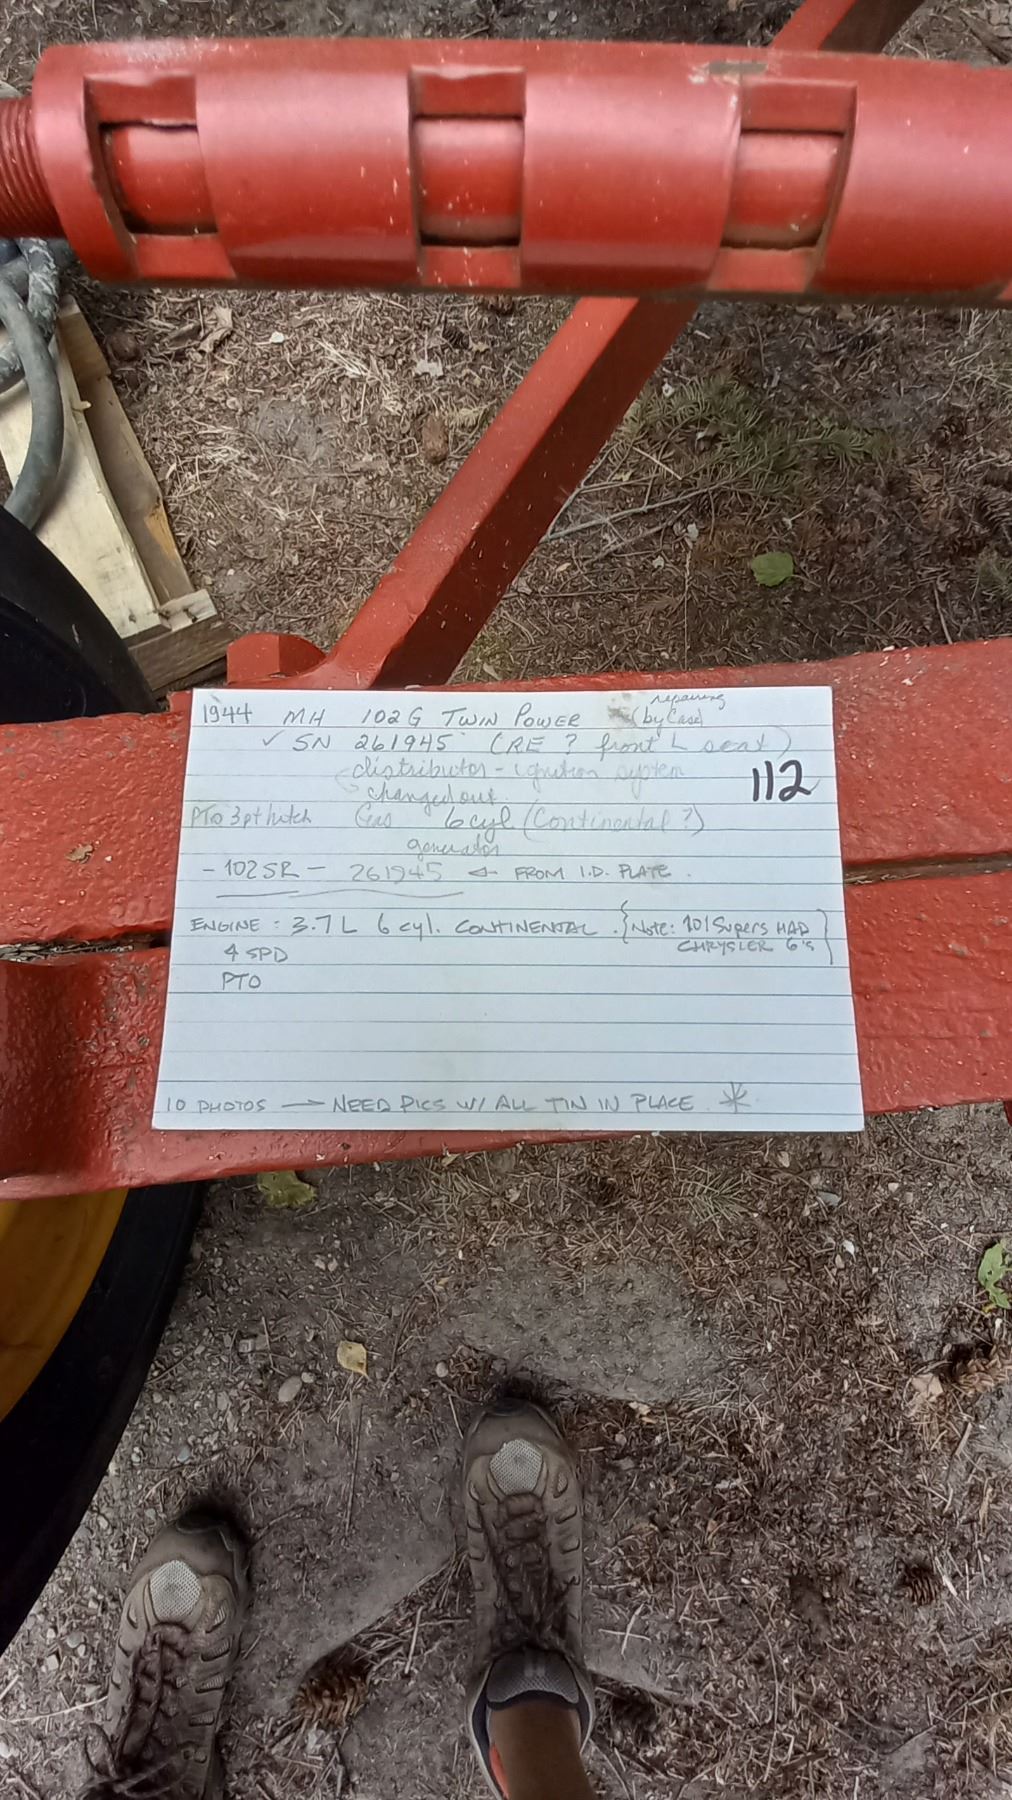 1944 MH 102 G TWIN POWER repairing
(by Case)
✓ SN 261945 (RE ? front L seat)
distributor - ignition system
changed out.
112
PTO 3pt hitch Gas 6 cyl (Continental ?)
generator
- 102 SR - 261945 ← FROM I.D. PLATE.
ENGINE : 3.7 L 6 cyl. CONTINENTAL. {Note: 101 Supers HAD
CHRYSLER 6's}
4 SPD
PTO
10 PHOTOS → NEED PICS W/ ALL TIN IN PLACE. *